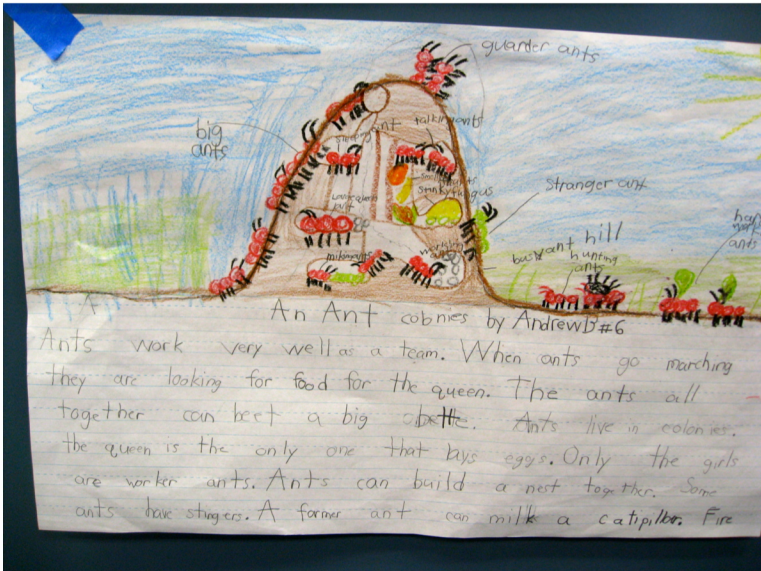 guarder ants
big
ants
ant
talking ants
stinky fungus
stranger ant
busy ant hill
hunting
ants
ants
An Ant colonies by AndrewB#6
Ants work very well as a team. When ants go marching
they are looking for food for the queen. The ants all
together can beet a big . Ants live in colonies.
the queen is the only one that lays eggs. Only the girls
are worker ants. Ants can build a nest together. Some
ants have stingers. A farmer ant can milk a catipiller. Fire